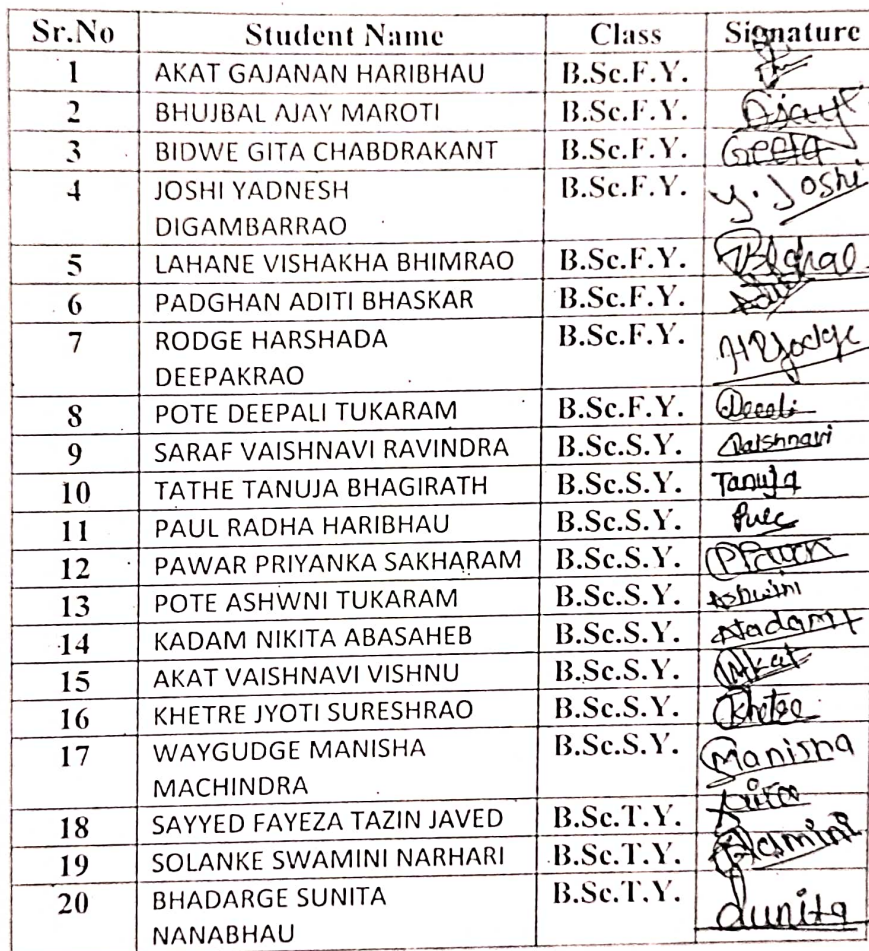 Sr.No Student Name Class Signature
1 AKAT GAJANAN HARIBHAU B.Sc.F.Y.
2 BHUJBAL AJAY MAROTI B.Sc.F.Y. Ajay
3 BIDWE GITA CHABDRAKANT B.Sc.F.Y. Geeta
4 JOSHI YADNESH B.Sc.F.Y. Y. Joshi
DIGAMBARRAO
5 LAHANE VISHAKHA BHIMRAO B.Sc.F.Y.
6 PADGHAN ADITI BHASKAR B.Sc.F.Y.
7 RODGE HARSHADA B.Sc.F.Y.
DEEPAKRAO
8 POTE DEEPALI TUKARAM B.Sc.F.Y.
9 SARAF VAISHNAVI RAVINDRA B.Sc.S.Y. Vaishnavi
10 TATHE TANUJA BHAGIRATH B.Sc.S.Y. Tanuja
11 PAUL RADHA HARIBHAU B.Sc.S.Y.
12 PAWAR PRIYANKA SAKHARAM B.Sc.S.Y.
13 POTE ASHWNI TUKARAM B.Sc.S.Y. Ashwini
14 KADAM NIKITA ABASAHEB B.Sc.S.Y.
15 AKAT VAISHNAVI VISHNU B.Sc.S.Y.
16 KHETRE JYOTI SURESHRAO B.Sc.S.Y.
17 WAYGUDGE MANISHA B.Sc.S.Y. Manisha
MACHINDRA
18 SAYYED FAYEZA TAZIN JAVED B.Sc.T.Y.
19 SOLANKE SWAMINI NARHARI B.Sc.T.Y.
20 BHADARGE SUNITA B.Sc.T.Y. Sunita
NANABHAU